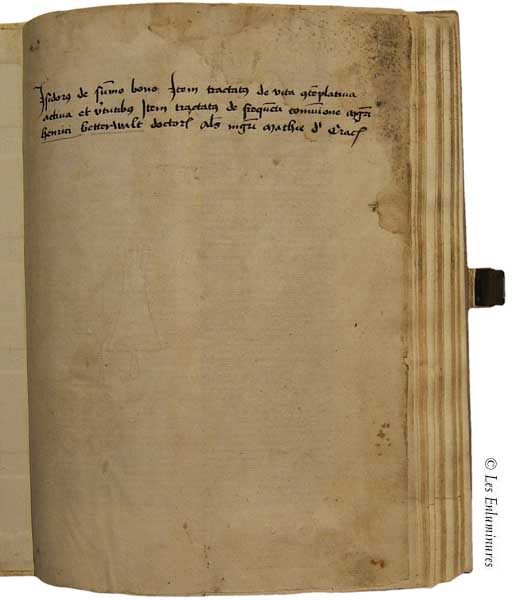 Isidorus de sūmo bono Item tractatus de vita ꝯtēplativa
activa et v̄tutibus Item tractatus de freqūeti comūnione mgr̄i
henrici Betterwalt doctoris als mgri Mathie d' Crac
© Les Enluminures